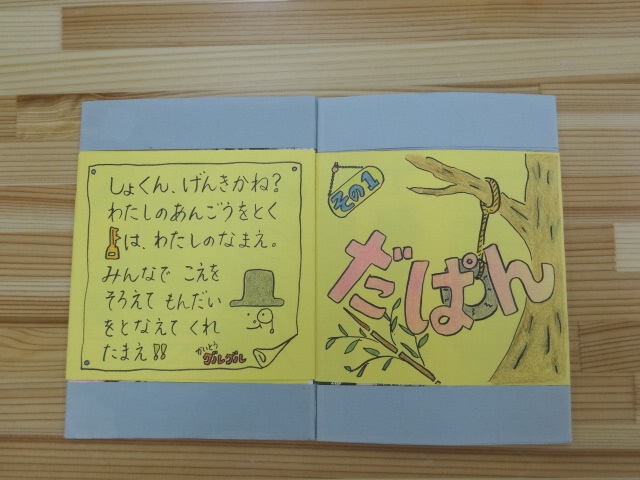 しょくん、げんきかね?
わたしのあんごうをとく
は、わたしのなまえ。
みんなで こえを
そろえて もんだい
をとなえて くれ
たまえ!!
かいとう
グルグル
その1
だぱん